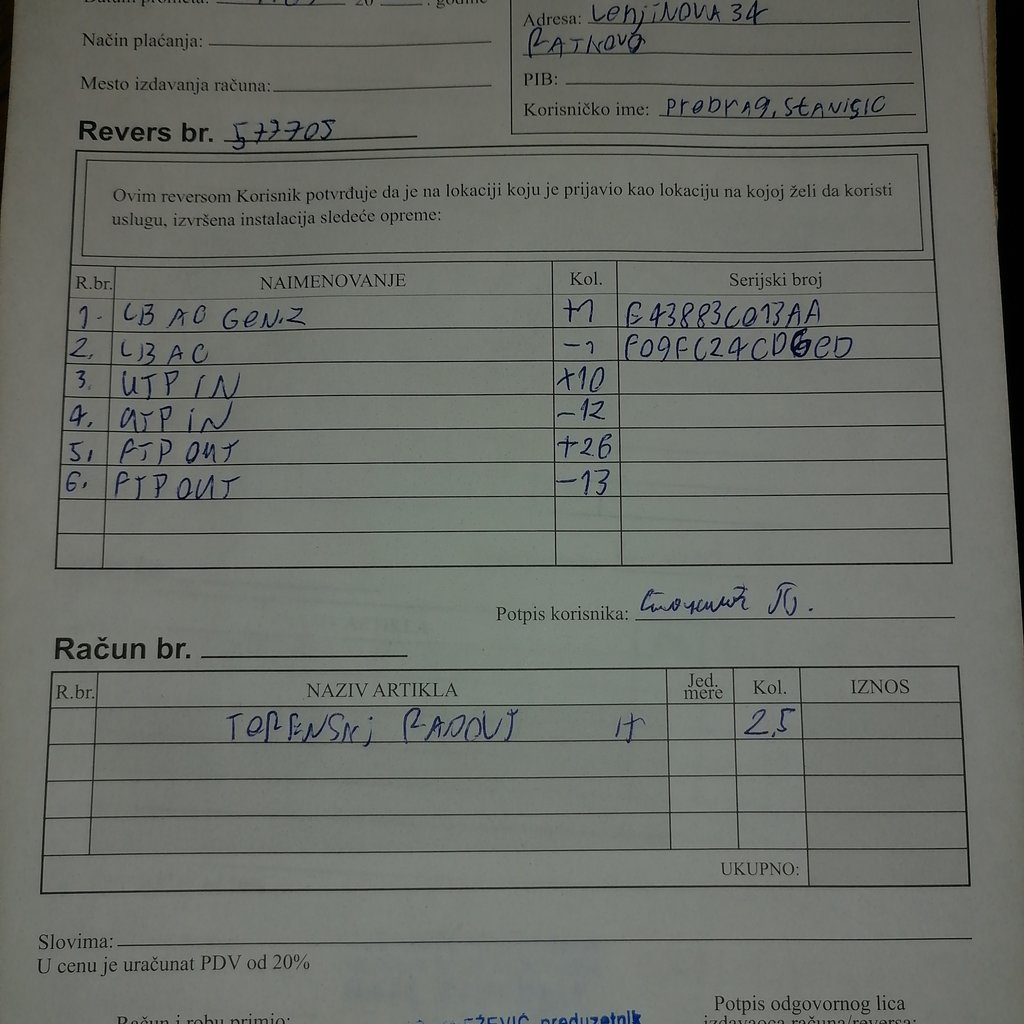 Datum prometa: 20 . godine
Način plaćanja:
Mesto izdavanja računa:
Adresa: LenjiNOVA 34
RATKOVO
PIB:
Korisničko ime: PrEDrAg.StANiSIC
Revers br. 577705
Ovim reversom Korisnik potvrđuje da je na lokaciji koju je prijavio kao lokaciju na kojoj želi da koristi
uslugu, izvršena instalacija sledeće opreme:
R.br. NAIMENOVANJE Kol. Serijski broj
1. LB AC GEN.2 +1 E43883C013AA
2. LB AC -1 F09FC24CD6ED
3. UTP IN +10
4. UTP IN -12
5. FTP OUT +26
6. FTP OUT -13
Potpis korisnika:
Račun br.
R.br. NAZIV ARTIKLA Jed. mere Kol. IZNOS
TERENSKi RADOVI H 2,5
UKUPNO:
Slovima:
U cenu je uračunat PDV od 20%
Račun i robu primio:
preduzetnik
Potpis odgovornog lica
izdavaoca računa/reversa: